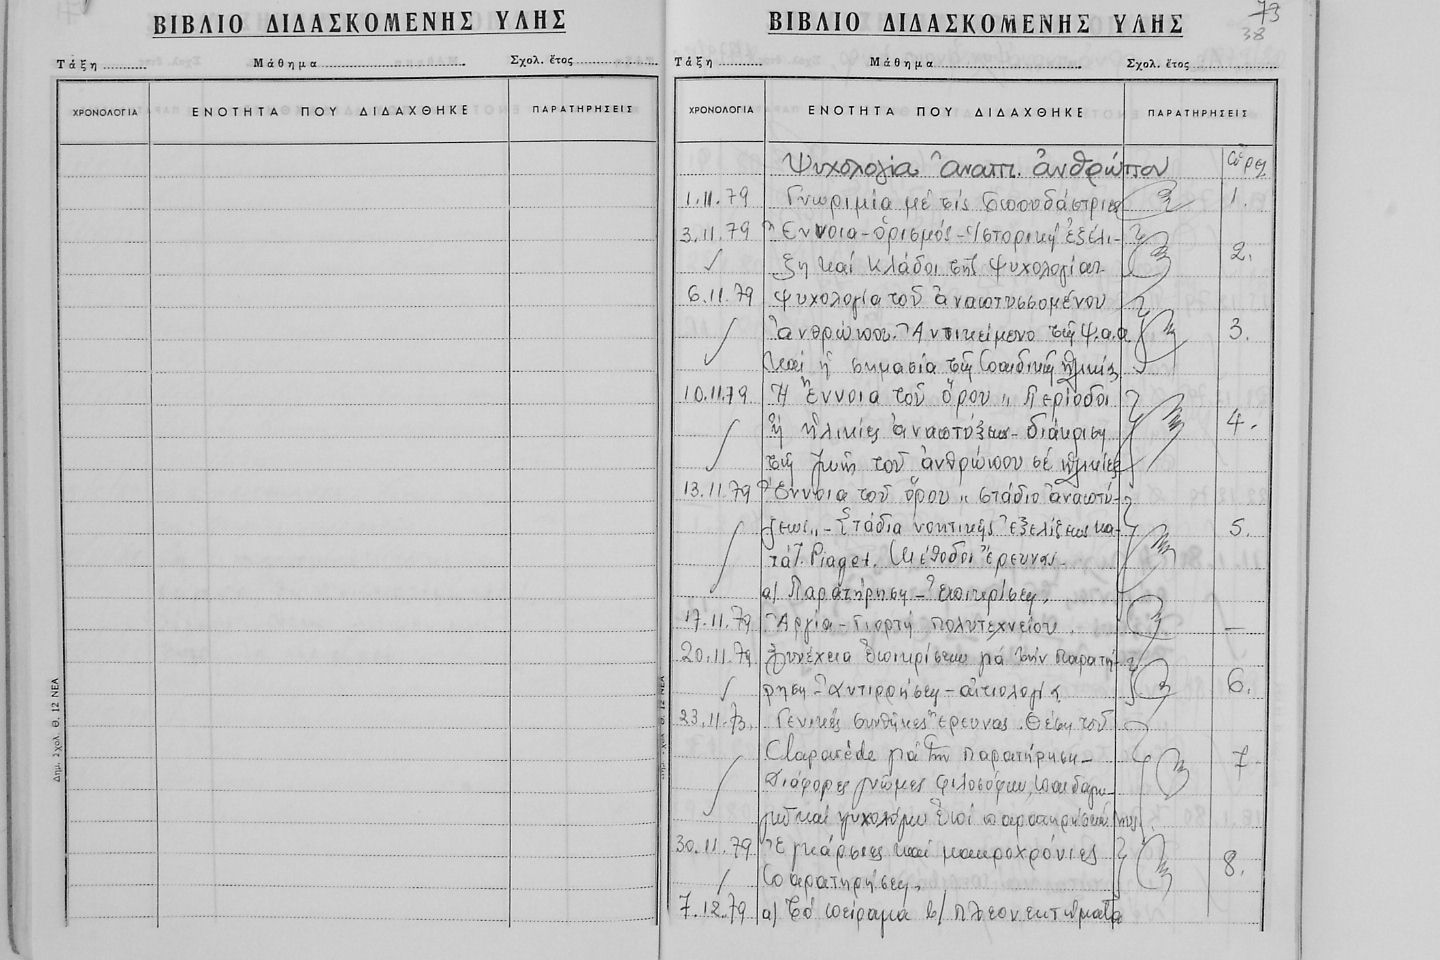 ΒΙΒΛΙΟ ΔΙΔΑΣΚΟΜΕΝΗΣ ΥΛΗΣ
Τάξη .......... Μάθημα .............................. Σχολ. ἔτος ....................
ΧΡΟΝΟΛΟΓΙΑ ΕΝΟΤΗΤΑ ΠΟΥ ΔΙΔΑΧΘΗΚΕ ΠΑΡΑΤΗΡΗΣΕΙΣ
Δημ. Σχολ. Θ. 12 ΝΕΑ
73
38
ΒΙΒΛΙΟ ΔΙΔΑΣΚΟΜΕΝΗΣ ΥΛΗΣ
Τάξη .......... Μάθημα .............................. Σχολ. ἔτος ....................
ΧΡΟΝΟΛΟΓΙΑ ΕΝΟΤΗΤΑ ΠΟΥ ΔΙΔΑΧΘΗΚΕ ΠΑΡΑΤΗΡΗΣΕΙΣ
Ψυχολογία ἀναπτ. ἀνθρώπου Ὧρες
1.11.79 Γνωριμία μέ τίς σπουδάστριες 1.
3.11.79 Ἔννοια - ὁρισμός - Ἱστορική ἐξέλι-
ξη καί κλάδοι τῆς ψυχολογίας 2.
6.11.79 ψυχολογία τοῦ ἀναπτυσσομένου
ἀνθρώπου. Ἀντικείμενο τῆς ψ.α.α 3.
καί ἡ σημασία τῆς παιδικῆς ἡλικίας
10.11.79 Ἡ ἔννοια τοῦ ὅρου „ Περίοδοι
ἤ ἡλικίες ἀναπτύξεως - διάκριση 4.
τῆς ζωῆς τοῦ ἀνθρώπου σέ ἡλικίες
13.11.79 Ἔννοια τοῦ ὅρου „ στάδιο ἀναπτύ-
ξεως „ - Στάδια νοητικῆς ἐξελίξεως κα- 5.
τά J. Piaget. Μέθοδοι ἔρευνας.
α) Παρατήρηση - ἐπικρίσεις.
17.11.79 Ἀργία - Γιορτή Πολυτεχνείου. —
20.11.79 Συνέχεια ἐπικρίσεων γιά τήν παρατή-
ρηση - Ἀντιρρήσεις - αἰτιολογία 6.
23.11.79. Γενικές συνθῆκες ἔρευνας. Θέση τοῦ
Claparède γιά τήν παρατήρηση - 7.
Διάφορες γνῶμες φιλοσόφων, παιδαγω-
γῶν καί ψυχολόγων ἐπί παρατηρήσεως
30.11.79 Ἐγκάρσιες καί μακροχρόνιες
παρατηρήσεις. 8.
7.12.79 α) Τό πείραμα β) πλεονεκτήματα
Δημ. Σχολ. Θ. 12 ΝΕΑ